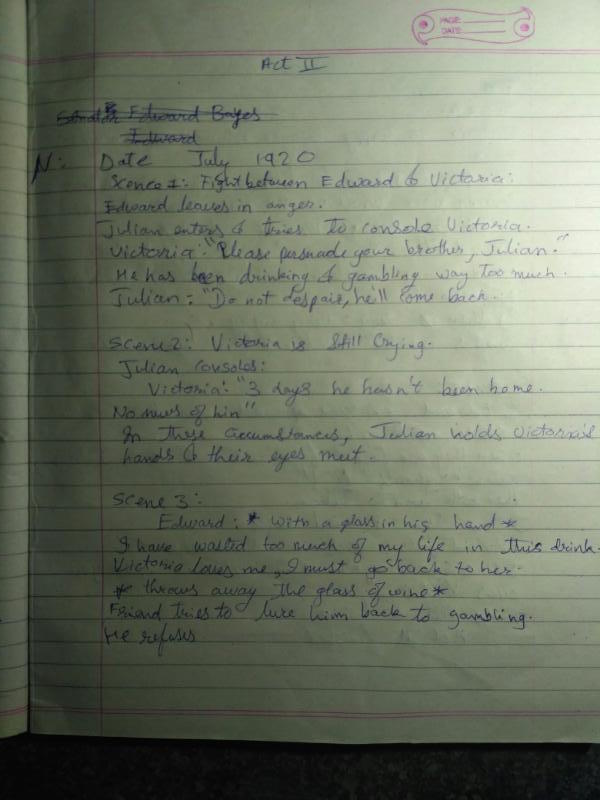 PAGE:
DATE:
Act II
Edward Bayes
Edward
N: Date July 1920
Scence 1: Fight between Edward & Victoria:
Edward leaves in anger.
Julian enters & tries to console Victoria.
Victoria: "Please persuade your brother, Julian."
He has been drinking & gambling way too much.
Julian: "Do not despair, he'll come back.
Scene 2: Victoria is Still Crying.
Julian consoles:
Victoria: "3 days he hasn't been home.
No news of him"
In these circumstances, Julian holds Victoria's
hands & their eyes meet.
Scene 3:
Edward: * with a glass in his hand *
I have wasted too much of my life in this drink.
Victoria loves me, I must go back to her.
* throws away the glass of wine *
Friend tries to lure him back to gambling.
He refuses